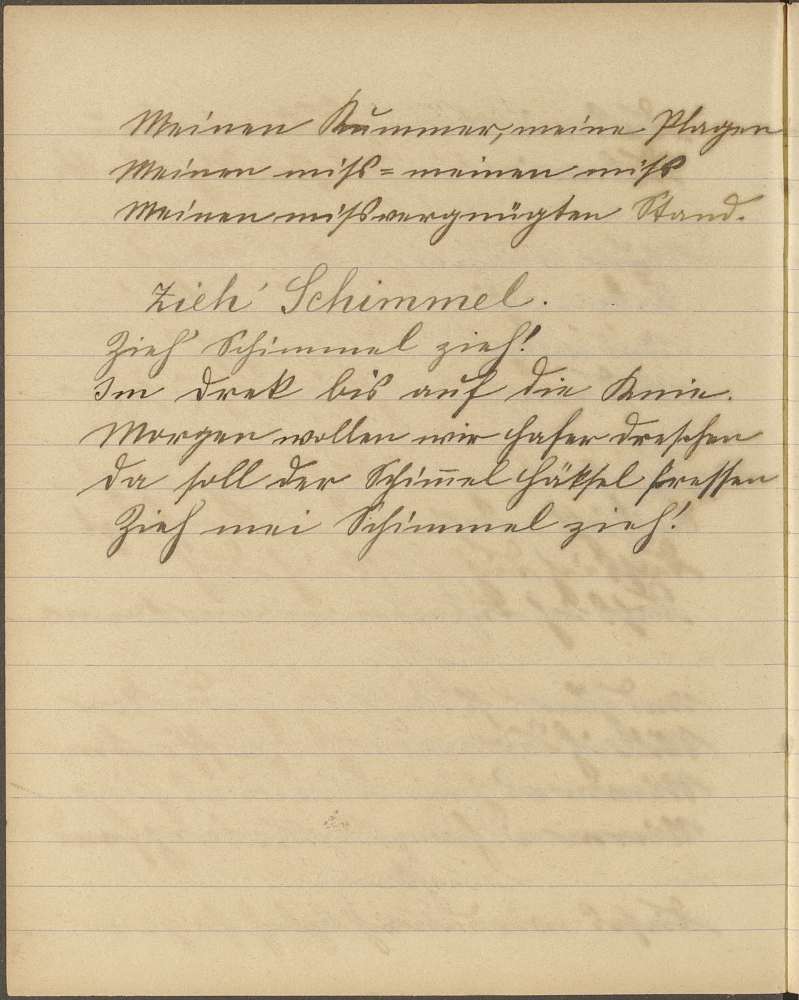 Meinen Kummer, meine Plagen
Meinen miss= meinen miss
Meinen missvergnügten Stand.
Zieh' Schimmel.
Zieh' Schimmel zieh!
Im Drek bis auf die Knie.
Morgen wollen wir Hafer dreschen
Da soll der Schim̅el Häksel fressen
Zieh mei Schimmel zieh!